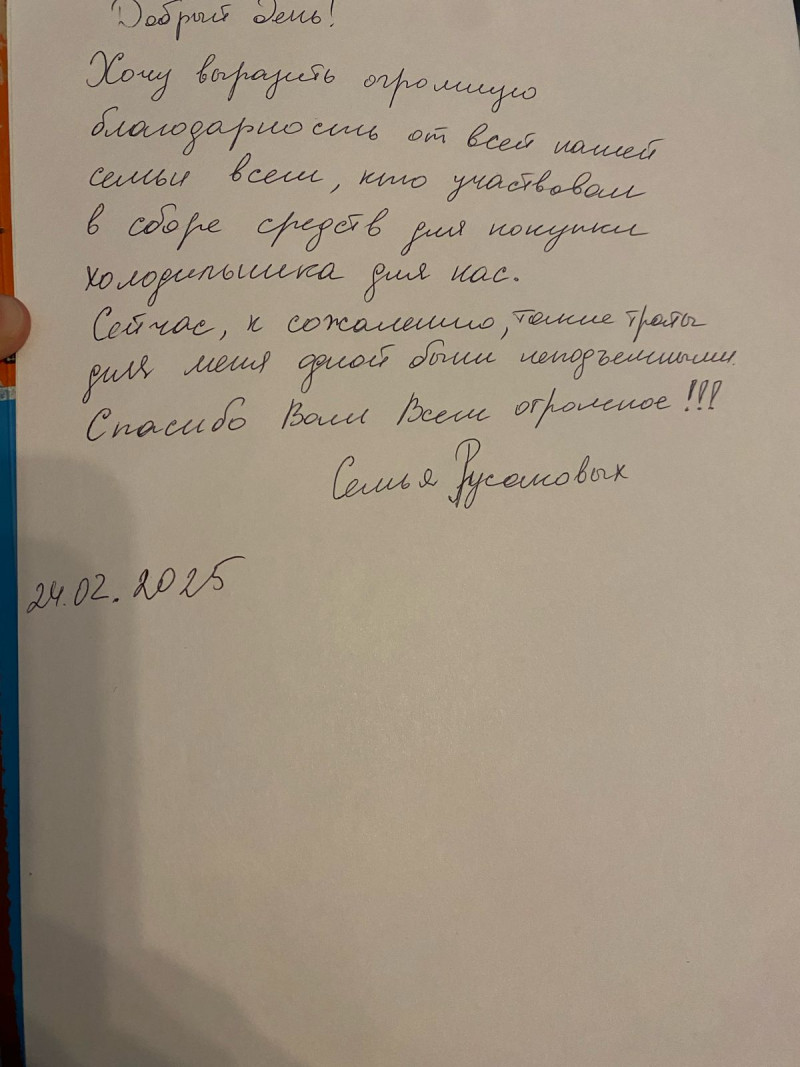 Добрый день!
Хочу выразить огромную
благодарность от всей нашей
семьи всем, кто участвовал
в сборе средств для покупки
холодильника для нас.
Сейчас, к сожалению, такие траты
для меня одной были неподъемными.
Спасибо Вам Всем огромное!!!
Семья Русаковых
24.02.2025